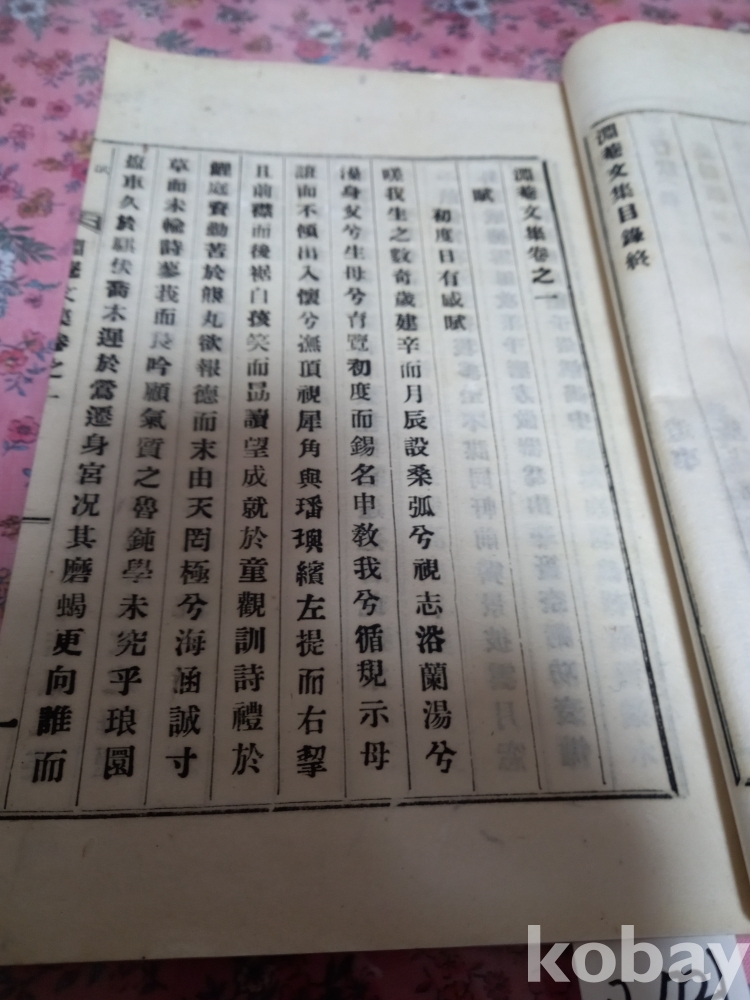 淵菴文集目錄終
淵菴文集卷之一
賦
初度日有感賦
嗟我生之數奇歲建辛而月辰設桑弧兮視志浴蘭湯兮
潔身父兮生母兮育覽初度而錫名申敎我兮循規示母
誑而不傾出入懷兮撫頂視犀角與璠璵繽左提而右挈
且前襟而後裾自孩笑而 讀望成就於童觀訓詩禮於
鯉庭賚勤苦於熊丸欲報德而末由天罔極兮海涵誠寸
草而未輸時蓼莪而長吟顧氣質之魯鈍學未究乎琅圜
車久於驥伏喬木遲於鶯遷身宮况其磨蝎更向誰而
淵菴文集卷之一
一
kobay